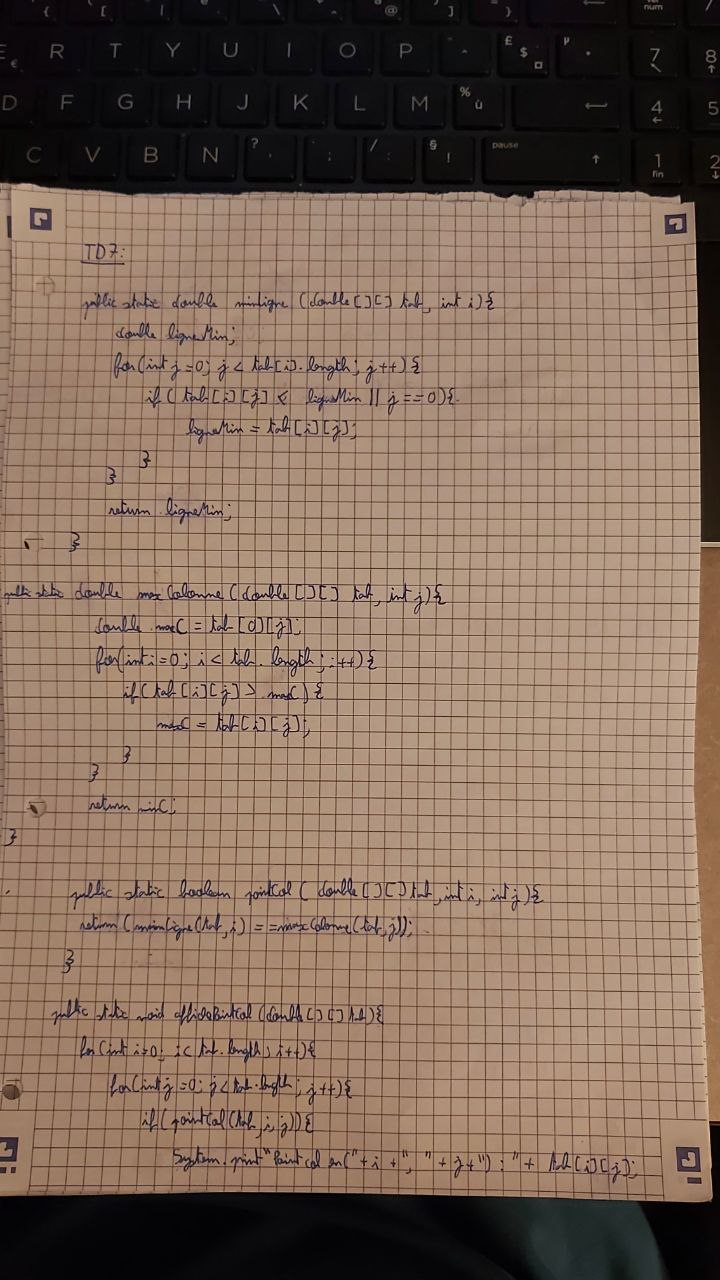 E R T Y U I O P £ $ ¤ µ * num 7 8
D F G H J K L M % ù 4 5
C V B N ? , . ; / : § ! pause 1 fin 2
TD7:
public static double minLigne (double[][] tab, int i){
double ligneMin;
for(int j=0; j < tab[i].length; j++){
if( tab[i][j] < ligneMin || j==0){
ligneMin = tab[i][j];
}
}
return ligneMin;
}
public static double maxColonne (double[][] tab, int j){
double maxC = tab[0][j];
for(int i=0; i < tab.length; i++){
if(tab[i][j] > maxC) {
maxC = tab[i][j];
}
}
return minC;
}
public static boolean pointCol ( double[][] tab, int i, int j){
return (minLigne(tab, i) == maxColonne(tab, j));
}
public static void affichePointCol (double[][] tab){
for(int i=0; i< tab.length; i++){
for(int j=0; j< tab.length; j++){
if( pointCol(tab, i, j)){
System.print"Point col en("+i+", "+ j+") : "+ tab[i][j];